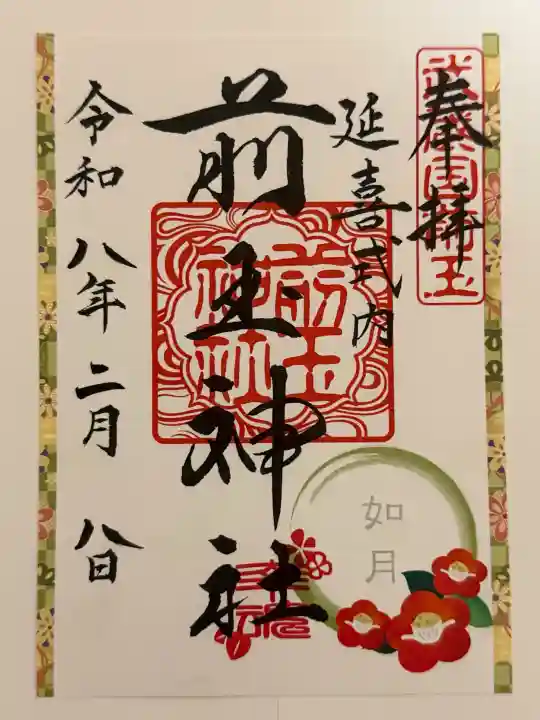 奉拝
武蔵国埼玉
延喜式内
前玉神社
前玉神社
如月
令和八年二月八日